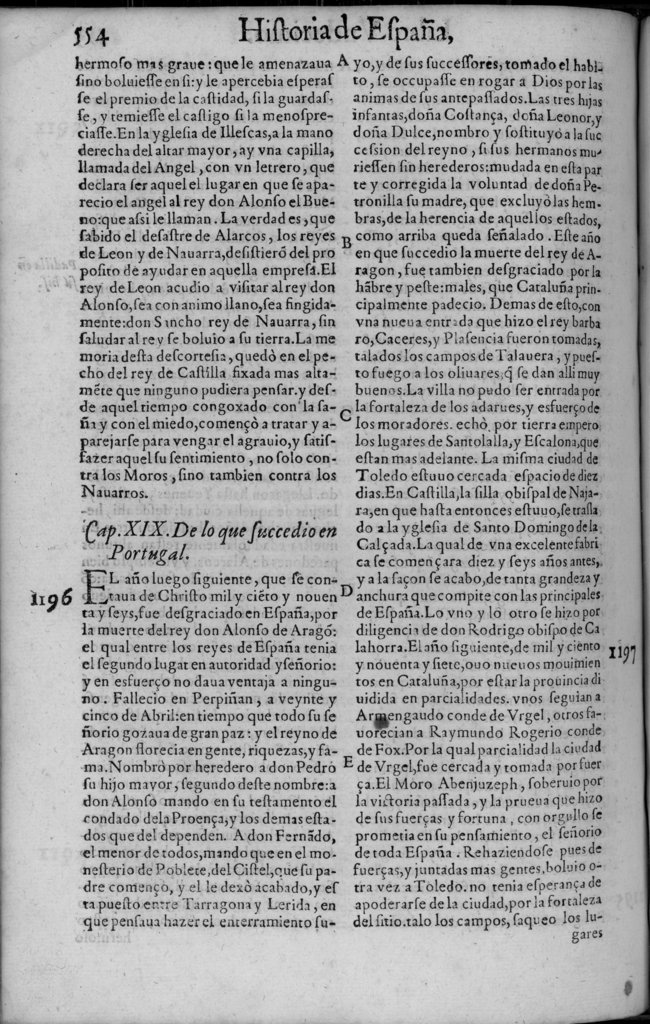 554 Historia de España,
hermoso mas graue: que le amenazaua
sino boluiesse en si: y le apercebia esperas
se el premio de la castidad, si la guardas-
se, y temiesse el castigo si la menospre-
ciasse. En la yglesia de Illescas, a la mano
derecha del altar mayor, ay vna capilla,
llamada del Angel, con vn letrero, que
declara ser aquel el lugar en que se apa-
recio el angel al rey don Alonso el Bue-
no: que assi le llaman. La verdad es, que
sabido el desastre de Alarcos, los reyes
de Leon y de Nauarra, desistierō del pro
posito de ayudar en aquella empresa. El
rey de Leon acudio a visitar al rey don
Alonso, sea con animo llano, sea fingida-
mente: don Sancho rey de Nauarra, sin
saludar al rey se boluio a su tierra. La me
moria desta descortesia, quedò en el pe-
cho del rey de Castilla fixada mas alta-
mēte que ninguno pudiera pensar. y des-
de aquel tiempo congoxado con la sa-
ña y con el miedo, començò a tratar y a-
parejarse para vengar el agrauio, y satis-
fazer aquel su sentimiento, no solo con-
tra los Moros, sino tambien contra los
Nauarros.
Cap. XIX. De lo que succedio en
Portugal.
1196
EL año luego siguiente, que se con-
taua de Christo mil y ciēto y nouen
ta y seys, fue desgraciado en España, por
la muerte del rey don Alonso de Aragō:
el qual entre los reyes de España tenia
el segundo lugar en autoridad y señorio:
y en esfuerço no daua ventaja a ningu-
no. Fallecio en Perpiñan, a veynte y
cinco de Abril: en tiempo que todo su se
ñorio gozaua de gran paz: y el reyno de
Aragon florecia en gente, riquezas, y fa-
ma. Nombrò por heredero a don Pedro
su hijo mayor, segundo deste nombre: a
don Alonso mando en su testamento el
condado dela Proença, y los demas esta-
dos que del dependen. A don Fernādo,
el menor de todos, mando que en el mo-
nesterio de Poblete, del Cistel, que su pa-
dre començo, y el le dexò acabado, y es
ta puesto entre Tarragona y Lerida, en
que pensaua hazer el enterramiento su-
A yo, y de sus successores, tomado el habi-
to, se occupasse en rogar a Dios por las
animas de sus antepassados. Las tres hijas
infantas, doña Costança, doña Leonor, y
doña Dulce, nombro y sostituyò a la suc
cession del reyno, si sus hermanos mu-
riessen sin herederos: mudada en esta par
te y corregida la voluntad de doña Pe-
tronilla su madre, que excluyò las hem-
bras, de la herencia de aquellos estados,
B como arriba queda señalado. Este año
en que succedio la muerte del rey de A-
ragon, fue tambien desgraciado por la
hābre y peste: males, que Cataluña prin-
cipalmente padecio. Demas de esto, con
vna nueua entrada que hizo el rey barba
ro, Caceres, y Plasencia fueron tomadas,
talados los campos de Talauera, y pues-
to fuego a los oliuares, q̄ se dan alli muy
buenos. La villa no pudo ser entrada por
C la fortaleza de los adarues, y esfuerço de
los moradores. echò por tierra empero
los lugares de Santolalla, y Escalona, que
estan mas adelante. La misma ciudad de
Toledo estuuo cercada espacio de diez
dias. En Castilla, la silla obispal de Naja-
ra, en que hasta entonces estuuo, se trasla
do a la yglesia de Santo Domingo de la
Calçada. La qual de vna excelente fabri
ca se començara diez y seys años antes,
D y a la saçon se acabo, de tanta grandeza y
anchura que compite con las principales
de España. Lo vno y lo otro se hizo por
diligencia de don Rodrigo obispo de Ca
lahorra. El año siguiente, de mil y ciento
1197
y nouenta y siete, ouo nueuos mouimien
tos en Cataluña, por estar la prouincia di
uidida en parcialidades. vnos seguian a
Armengaudo conde de Vrgel, otros fa-
uorecian a Raymundo Rogerio conde
E de Fox. Por la qual parcialidad la ciudad
de Vrgel, fue cercada y tomada por fuer
ça. El Moro Abenjuzeph, soberuio por
la victoria passada, y la prueua que hizo
de sus fuerças y fortuna, con orgullo se
prometia en su pensamiento, el señorio
de toda España. Rehaziendose pues de
fuerças, y juntadas mas gentes, boluio o-
tra vez a Toledo. no tenia esperança de
apoderarse de la ciudad, por la fortaleza
del sitio. talo los campos, saqueo los lu-
gares